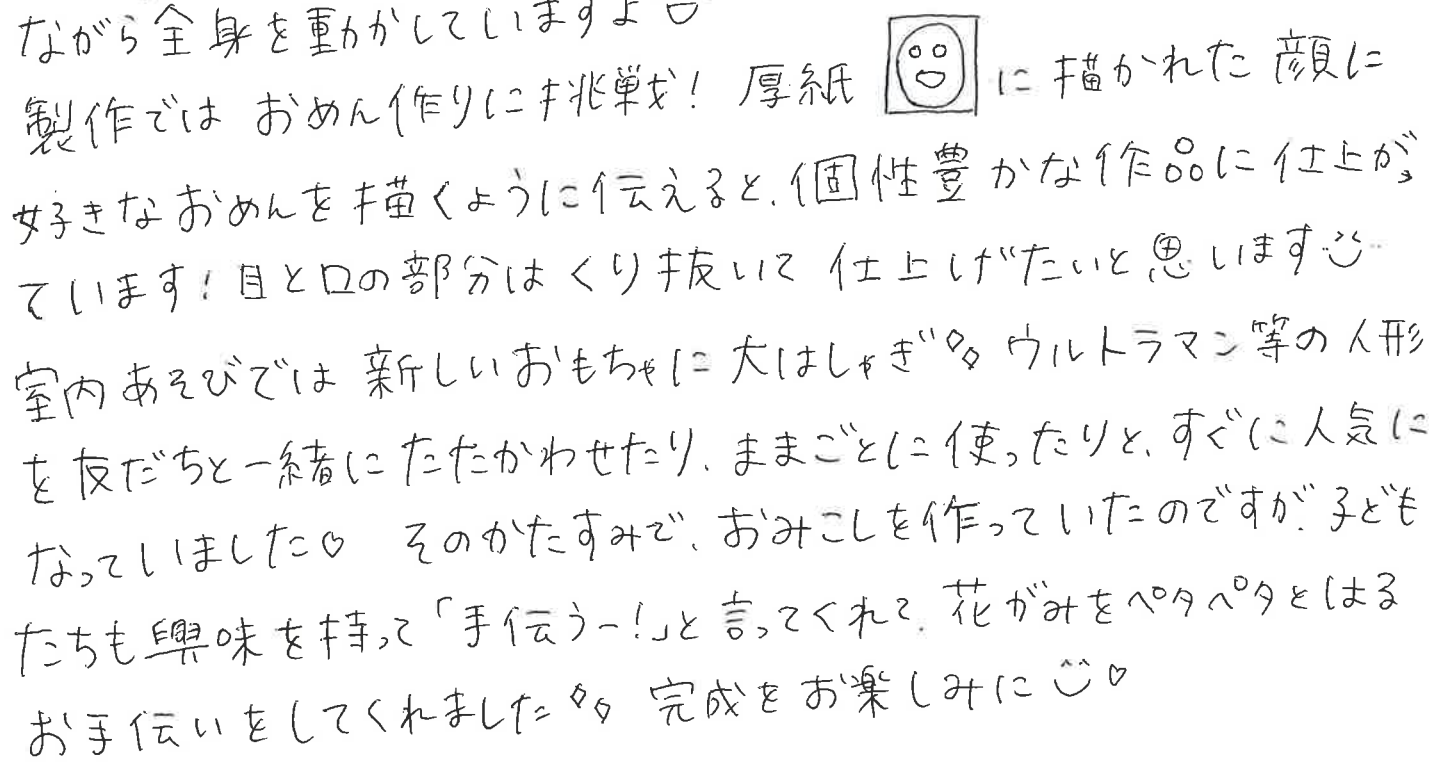 ながら全身を動かしていますよ
製作では おめん作りに挑戦! 厚紙 に描かれた顔に
好きなおめんを描くように伝えると、個性豊かな作品に仕上がっ
ています!目と口の部分はくり抜いて 仕上げたいと思います
室内あそびでは 新しいおもちゃに大はしゃぎ ウルトラマン等の人形
を友だちと一緒にたたかわせたり、ままごとに使ったりと、すぐに人気に
なっていました♡ そのかたすみで、おみこしを作っていたのですが、子ども
たちも興味を持って「手伝うー!」と言ってくれて、花がみをペタペタとはる
お手伝いをしてくれました 完成をお楽しみに♡